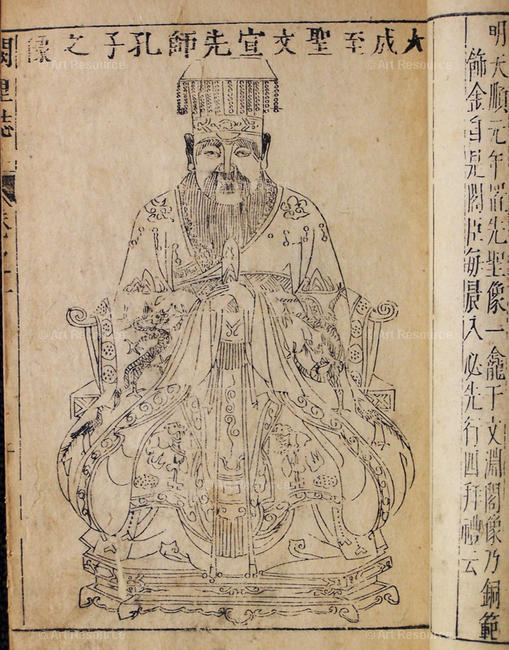 明天順元年先聖像一龕于文淵閣像乃銅範
飾金自是閣臣每晨入必先行四拜禮云
大成至聖文宣先師孔子之像
誌
© Art Resource
© Art Resource
© Art Resource
© Art Resource
© Art Resource
© Art Resource
© Art Resource